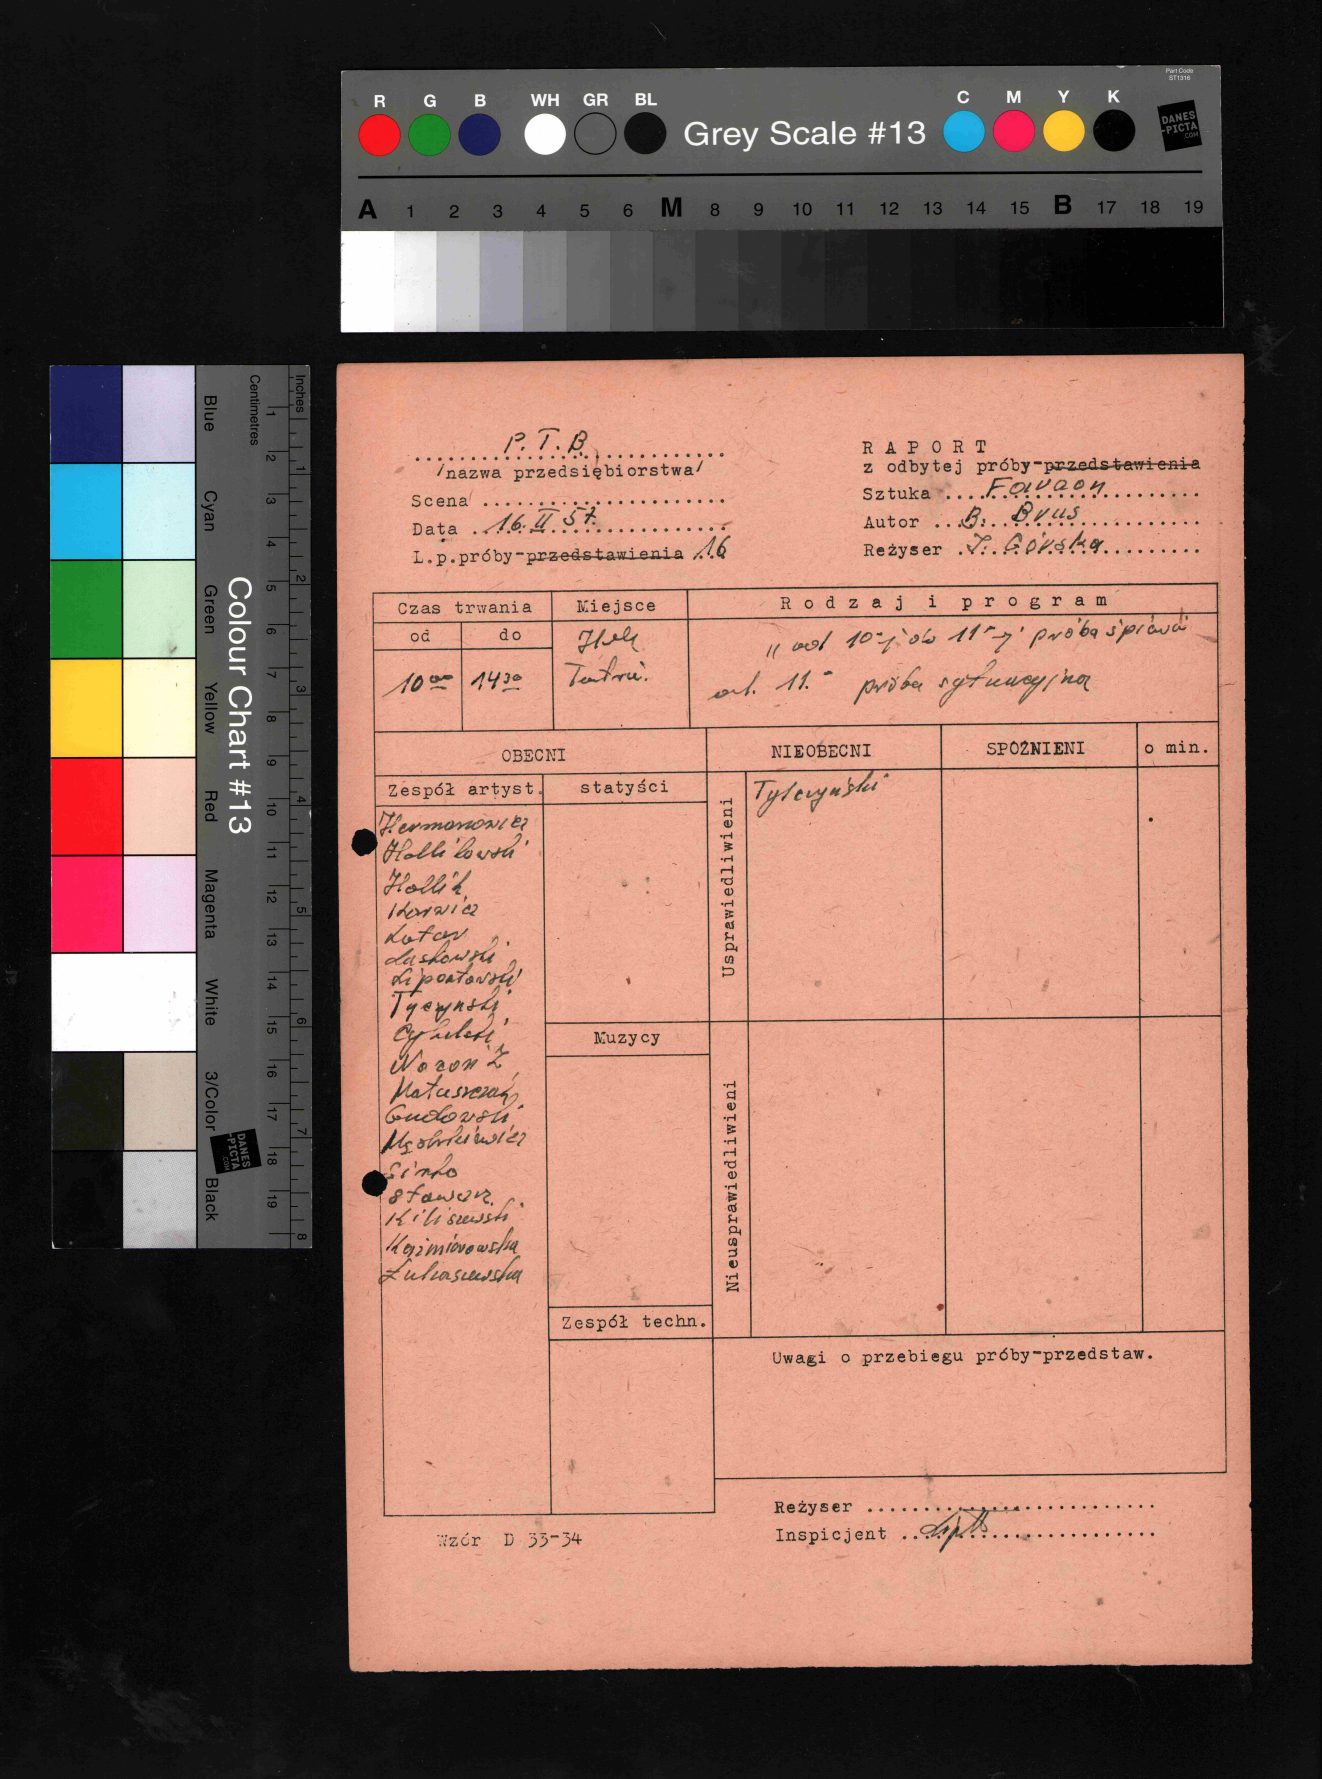 Part Code
ST1316
R G B WH GR BL Grey Scale #13 C M Y K
DANES
-PICTA
.COM
A 1 2 3 4 5 6 M 8 9 10 11 12 13 14 15 B 17 18 19
Colour Chart #13
Blue Cyan Green Yellow Red Magenta White 3/Color Black
Centimetres
Inches
1 2 3 4 5 6 7 8 9 10 11 12 13 14 15 16 17 18 19
1 2 3 4 5 6 7 8
DANES
-PICTA
.COM
P. T. B.
/nazwa przedsiębiorstwa/
Scena
Data 16. II 57.
L.p.próby-przedstawienia 16
R A P O R T
z odbytej próby-przedstawienia
Sztuka Faraon
Autor B. Prus
Reżyser I. Górska
Czas trwania Miejsce R o d z a j i p r o g r a m
od do
10 00 14 30
Teatru.
od 10-j do 11-j próba
od. 11.- próba sytuacyjna
OBECNI NIEOBECNI SPÓŹNIENI o min.
Zespół artyst. statyści
Usprawiedliwieni
Tylczyński
Hermanowicz
Hollik
Karwicz
Lotar
Laskowski
Tyczyński
Cybulski
Matuszczak
Gudowski
Sinko
Kiliszewski
Kazimirowska
Łukaszewska
Muzycy
Nieusprawiedliwieni
Zespół techn.
Uwagi o przebiegu próby-przedstaw.
Reżyser
Inspicjent
Wzór D 33-34